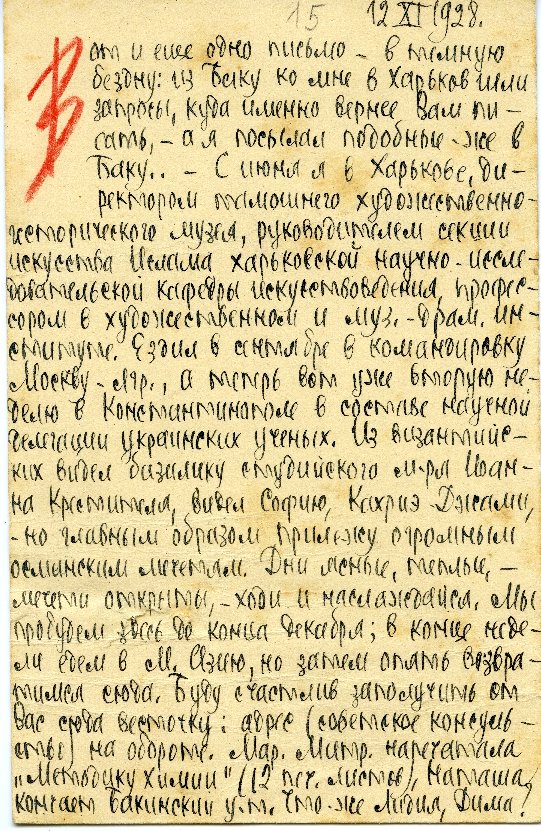 15 12 XI 1928.
Вот и еще одно письмо - в темную
бездну: из Баку ко мне в Харьков шли
запросы, куда именно вернее Вам пи-
сать, - а я посылал подобные-же в
Баку.. - С июня я в Харькове, ди-
ректором тамошнего художественно-
исторического музея, руководителем секции
искусства Ислама харьковской научно-иссле-
довательской кафедры искусствоведения, профес-
сором в художественном и муз.-драм. ин-
ституте. Ездил в сентябре в командировку
Москву - Лгр., а теперь вот уже вторую не-
делю в Константинополе в составе научной
делегации украинских ученых. Из византийс-
ких видел базилику студийского м-ря Иоан-
на Крестителя, видел Софию, Кахриэ Джами,
- но главным образом прилежу огромным
османским мечетям. Дни ясные, теплые, -
мечети открыты, - ходи и наслаждайся. Мы
пробудем здесь до конца декабря; в конце неде-
ли едем в М. Азию, но затем опять возвра-
тимся сюда. Буду счастлив заполучить от
Вас сюда весточку: адрес (советское консуль-
ство) на обороте. Мар. Митр. напечатала
"Методику химии" (12 печ. листов), Наташа
кончает Бакинский у-т. Что-же Лидия, Дима?